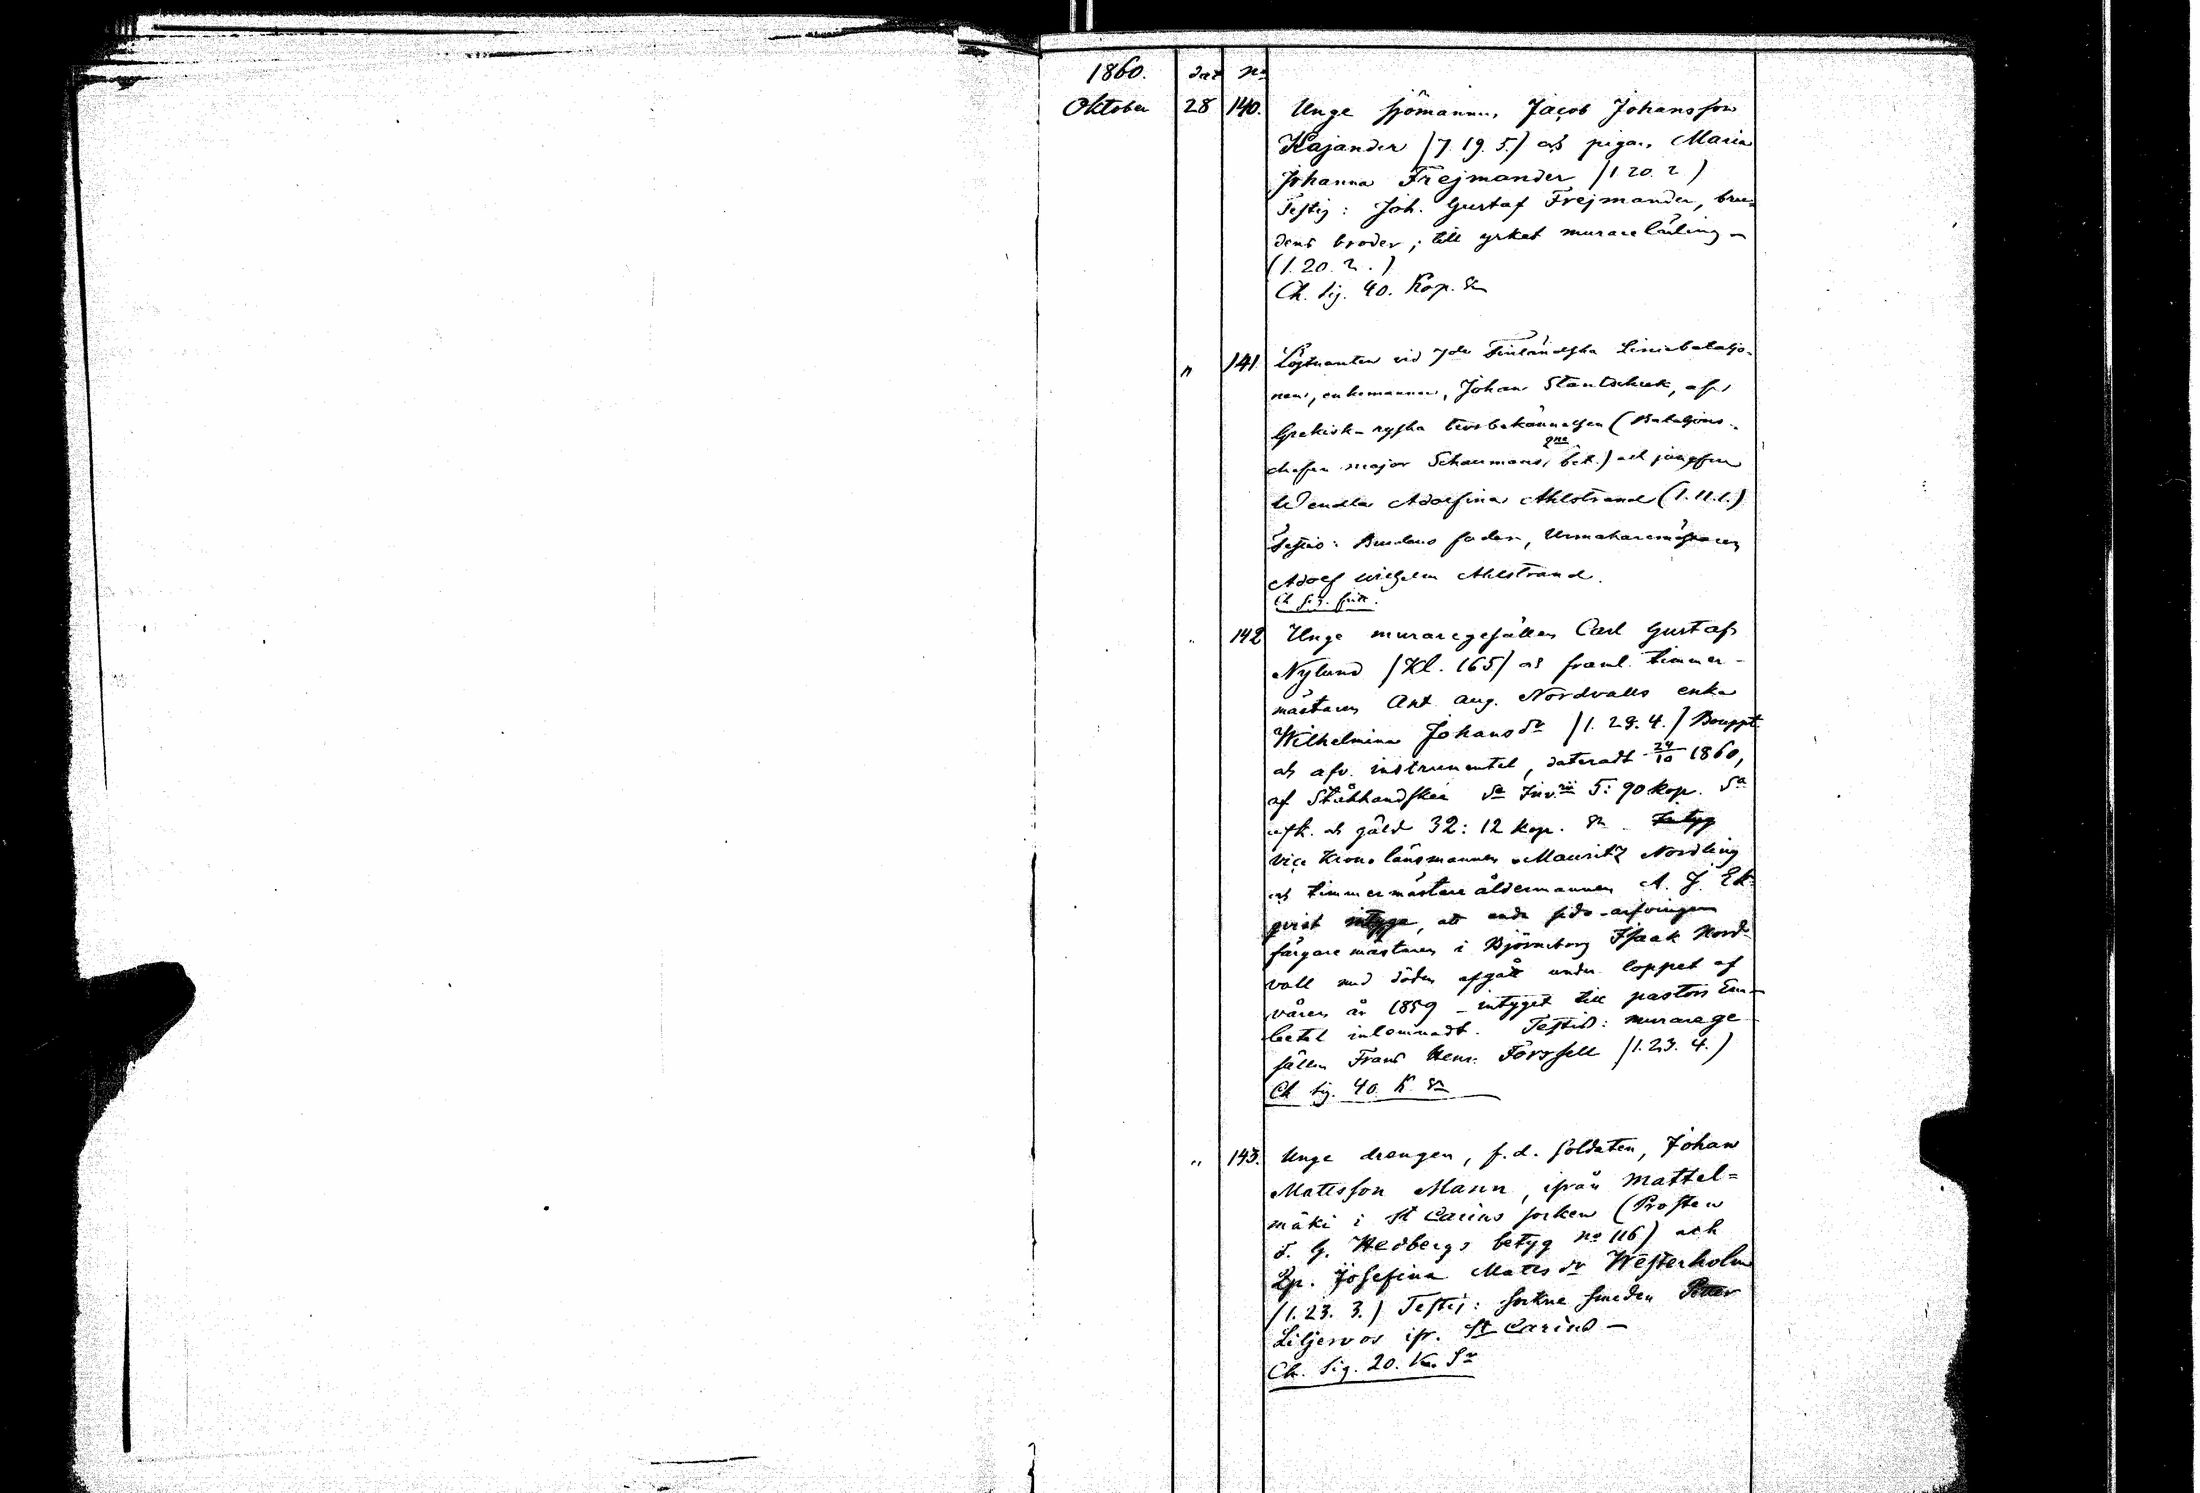 1860. dat no
Oktober 28 140. Unge sjömannen, Jacob Johansson
Kajander /7. 19. 5./ och pigan, Maria
Johanna Frejmander /1. 20. 2/
Testis: Joh. Gustaf Frejmander, bru-
dens broder; till yrket murarelärling –
(1. 20. 2.)
Ch. sig. 40. Kop. Sr
" 141 Löjtnanten vid 7de Finländska Liniebataljo-
nen, enkemannen, Johan Stantschek, af
Grekisk-ryska trosbekännelsen (Bataljons-
chefen major Schaumans, bet.) och jungfrun
Wendla Adolfina Ahlstrand (1. 11. 1.)
Testis: Brudens fader, Urmakaremästaren
Adolf Wilhelm Ahlstrand.
Ch sig. fritt.
" 142 Unge muraregesällen Carl Gustaf
Nylund /Kl. 165/ och framl. timmer-
mästaren Ant. Aug. Nordvalls enka
Wilhelmina Johansdr /1. 29. 4./ Bouppt.
och afv. instrumentet, dateradt 24/10 1860,
af Stålhandske 5: 90 kop. Sr
och gäld 32: 12 kop. Sr. Intyg
vice Kronolänsmannen Mauritz Nordling
och timmermästare åldermannen A. J. Ek-
qvist intyga, att enda sido-arfvingen
färgaremästaren i Björneborg Isaak Nord-
vall med döden afgått under loppet af
våren år 1859 – intyget till pastors Em-
betet inlemnadt. Testis: murarege-
sällen Frans Henr. Forssell /1. 23. 4.)
Ch sig. 40. K. Sr
" 143. Unge drengen, f.d. soldaten, Johan
Mattsson Mann, ifrån Mattel=
mäki i St Carins socken (Prosten
J. G. Hedbergs betyg no 116) och
Pp. Josefina Matts dr Westerholm
/1. 23. 3.) Testis: Sockne smeden Petter
Liljeroos ifr. St Carins –
Ch. sig. 20. K. Sr